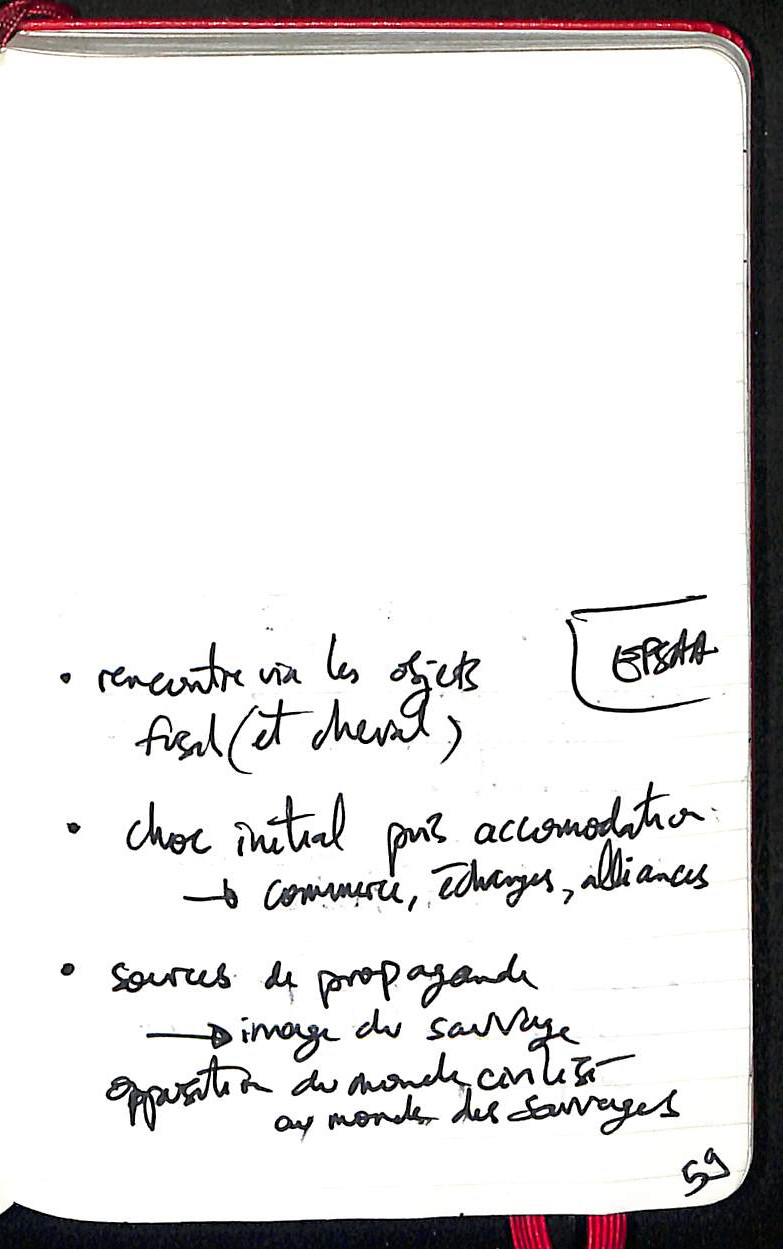 EPSAA
• rencontre via les objets
fusil (et cheval)
• choc initial puis accomodation
→ commerce, échanges, alliances
• sources de propagande
→ image du sauvage
opposition du monde civilisé
au monde des sauvages
59